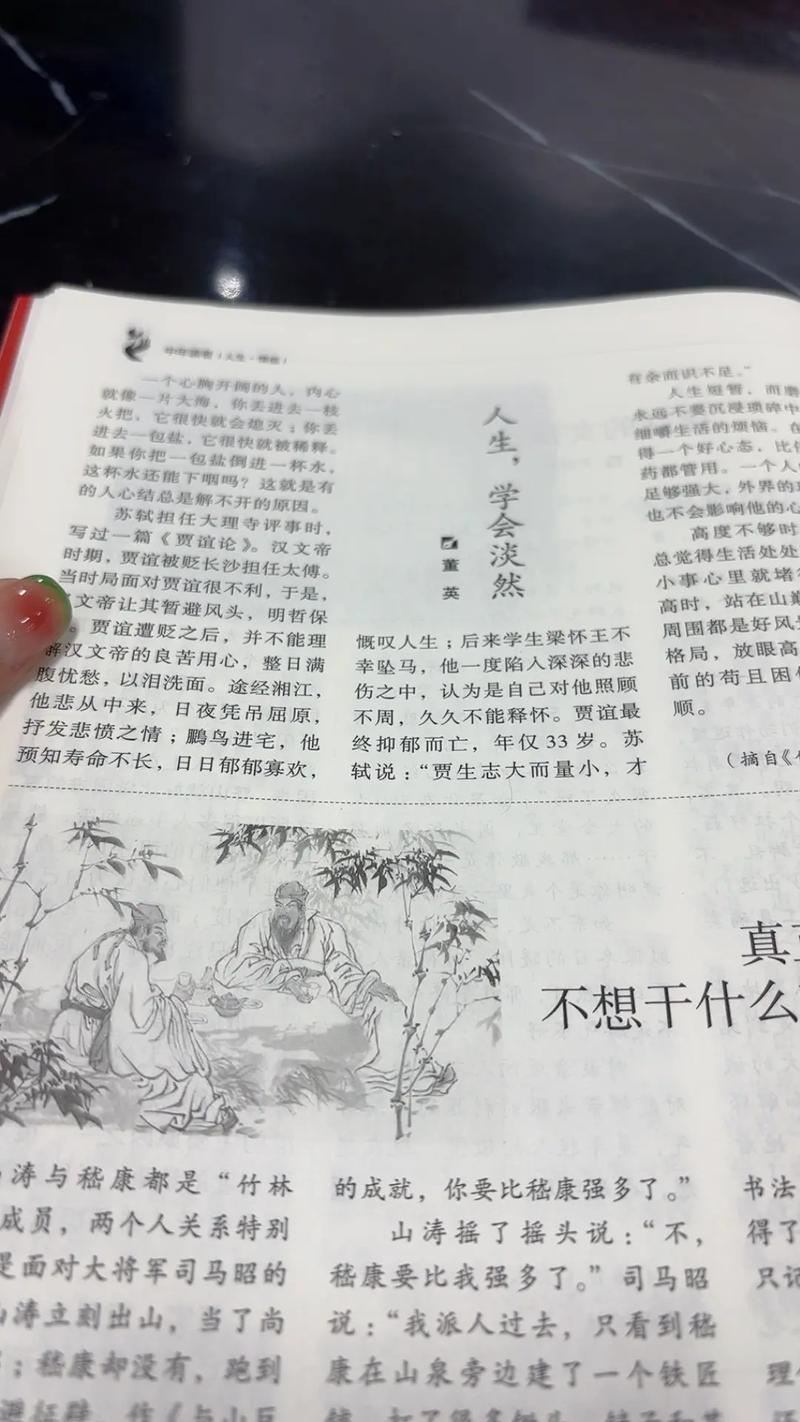 一个心胸开阔的人，内心
就像一片大海，你丢进去一枝
火把，它很快就会熄灭；你丢
进去一包盐，它很快就被稀释。
如果你把一包盐倒进一杯水，
这杯水还能下咽吗？这就是有
的人心结总是解不开的原因。
苏轼担任大理寺评事时，
写过一篇《贾谊论》。汉文帝
时期，贾谊被贬长沙担任太傅。
当时局面对贾谊很不利，于是，
文帝让其暂避风头，明哲保
。贾谊遭贬之后，并不能理
解汉文帝的良苦用心，整日满
腹忧愁，以泪洗面。途经湘江，
他悲从中来，日夜凭吊屈原，
抒发悲愤之情；鵩鸟进宅，他
预知寿命不长，日日郁郁寡欢，
人生，学会淡然
董英
慨叹人生；后来学生梁怀王不
幸坠马，他一度陷入深深的悲
伤之中，认为是自己对他照顾
不周，久久不能释怀。贾谊最
终抑郁而亡，年仅33岁。苏
轼说：“贾生志大而量小，才
有余而识不足。”
人生短暂，而
永远不要沉浸琐碎中
细嚼生活的烦恼。
得一个好心态，比
药都管用。一个人
足够强大，外界的
也不会影响他的心
高度不够时
总觉得生活处处
小事心里就堵
高时，站在山
周围都是好风
格局，放眼高
前的苟且困
顺。
（摘自《
真
不想干什么
涛与嵇康都是“竹林
成员，两个人关系特别
是面对大将军司马昭的
涛立刻出山，当了尚
；嵇康却没有，跑到
的成就，你要比嵇康强多了。”
山涛摇了摇头说：“不，
嵇康要比我强多了。”司马昭
说：“我派人过去，只看到嵇
康在山泉旁边建了一个铁匠
书法
得了
只记